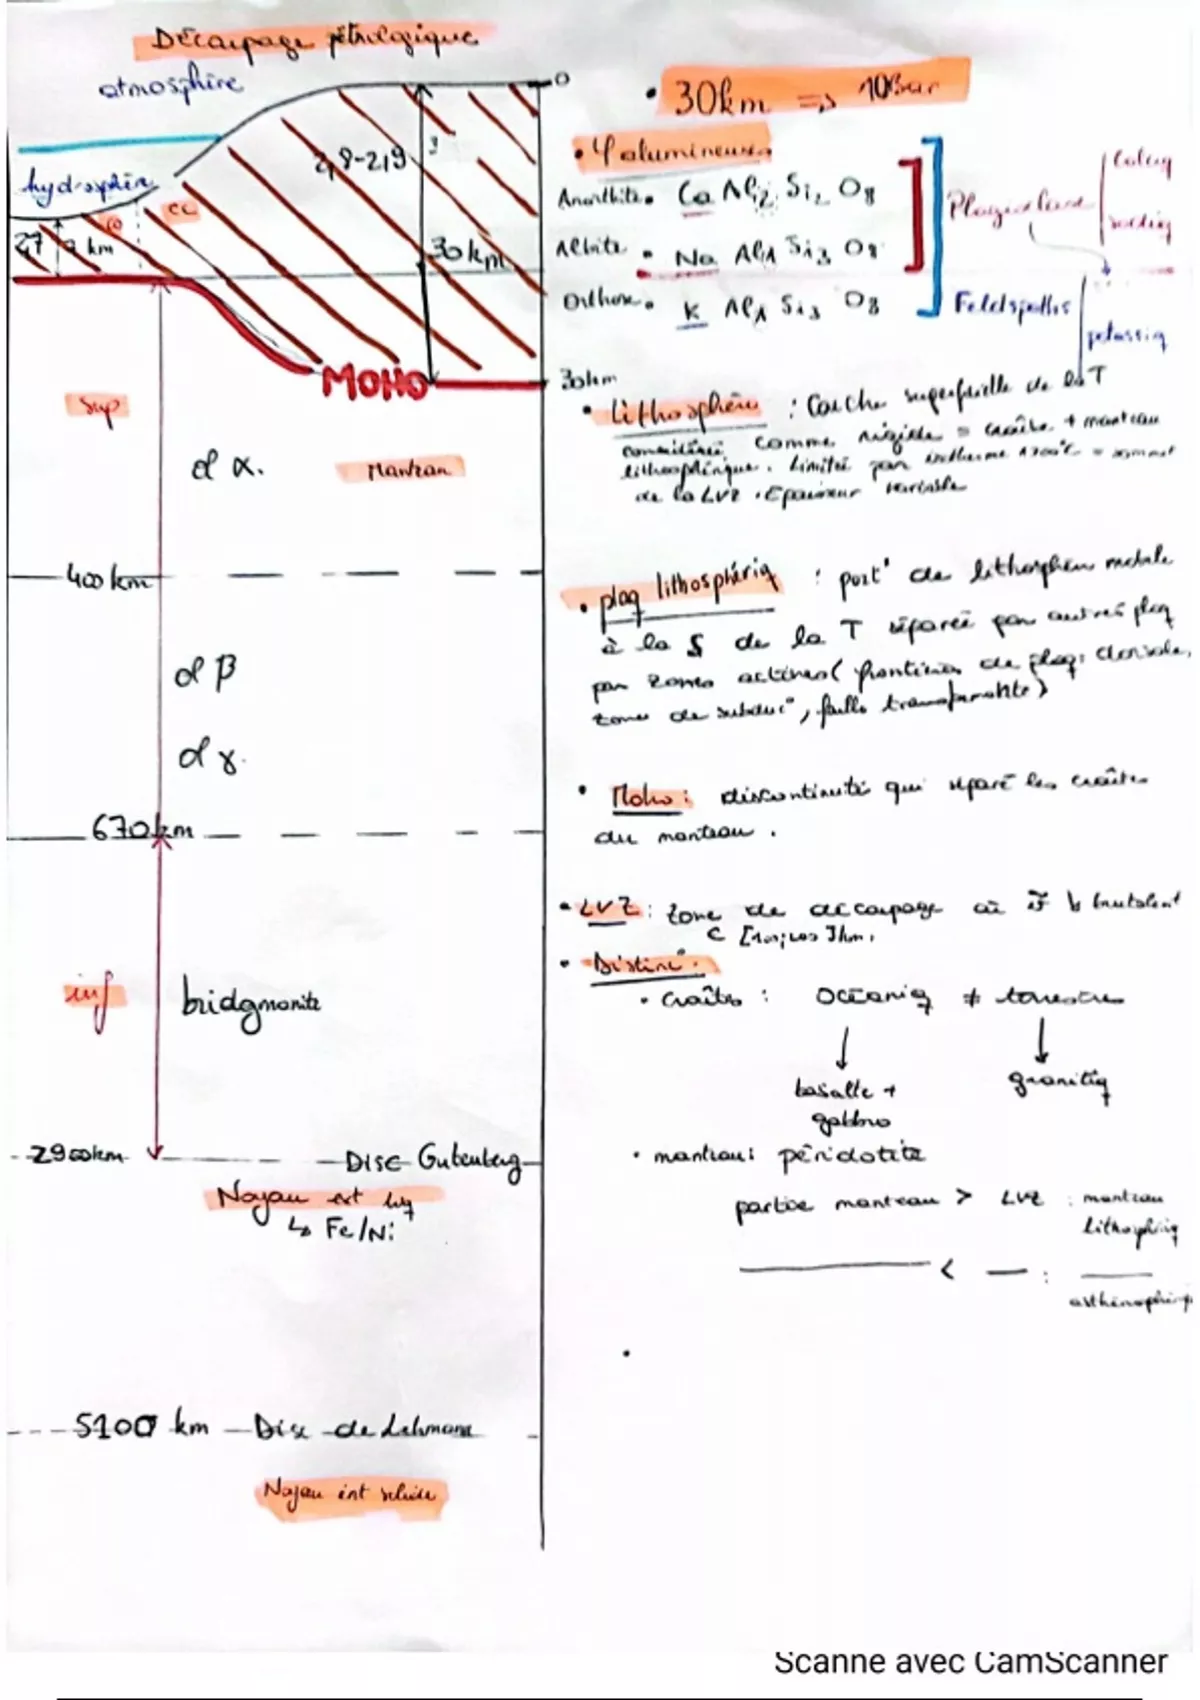 Découpage pétrologique
atmosphère
0
hydrosphère
2,8-2,9
co
cc
2,7
7 km
30km
MOHO
30km
Sup
ol α.
Manteau
400 km
ol β
ol γ.
670 km
inf
bridgmanite
2900km
Disc Gutenberg
Noyau ext liq
↳ Fe/Ni
5100 km — Disc de Lehmann
Noyau int solide
• 30km => 10
• φ alumineuses
Anorthite • Ca Al2 Si2 O8
Albite • Na Al1 Si3 O8
Orthose • K Al1 Si3 O8
Plagioclase
calciq
sodiq
Feldspaths
potassiq
• Lithosphère : Couche superficielle de la T
considérée comme rigide = croûte + manteau
lithosphérique. Limité par isotherme 1300°C = sommet
de la LVZ. Epaisseur variable
• plaq lithosphériq : port° de lithosphère mobile
à la S de la T séparée par autres plaq
par zones actives (frontières de plaq: dorsale,
zone de subduc°, faille transformante)
• Moho : discontinuité qui sépare les croûtes
du manteau.
• LVZ : zone de découpage où ↓ brutalent
km,
• Distinc°.
• croûtes : océaniq ≠ terrestre
↓ ↓
basalte + granitiq
gabbro
• manteau : péridotite
partie manteau > LVZ : manteau
lithosphériq
——— < — : ——
asthénosphériq
•
Scanné avec CamScanner